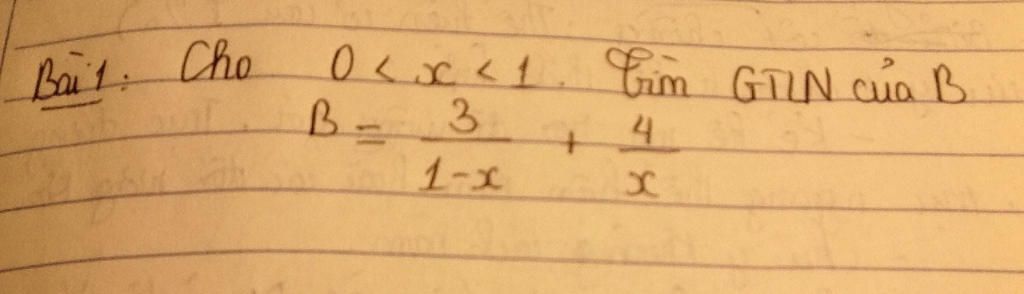 Bài 1: Cho 0 < x < 1. Tìm GTLN của B
B = 3/(1-x) + 4/x